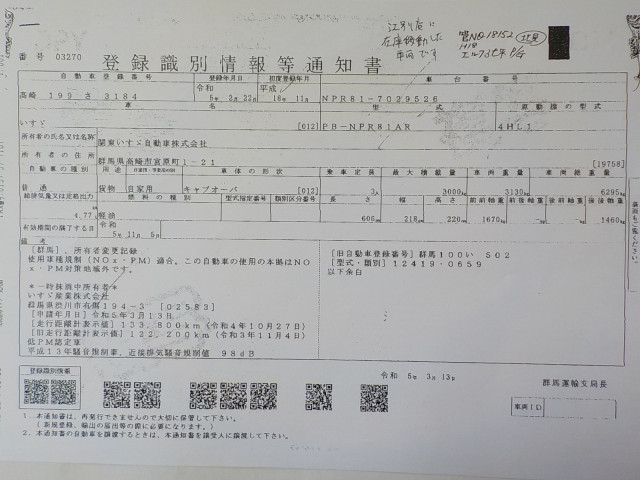 江別店に
在庫移動した
車両です
管NO.18152
番号 03270
登録識別情報等通知書
自動車登録番号 登録年月日 初度登録年月 車台番号
高崎 199 さ 3184 令和 5年 3月22日 平成 18年 11月 NPR81-7029526
車名 型式 原動機の型式
いすゞ [012] PB-NPR81AR 4HL1
所有者の氏名又は名称 関東いすゞ自動車株式会社
所有者の住所 群馬県高崎市宮原町1-21 [19758]
自動車の種別 用途 自家用・事業用の別 車体の形状 乗車定員 最大積載量 車両重量 車両総重量
普通 貨物 自家用 キャブオーバ [012] 3人 3000kg 3130kg 6295kg
総排気量又は定格出力 燃料の種類 型式指定番号 類別区分番号 長さ 幅 高さ 前前軸重 前後軸重 後前軸重 後後軸重
4.77 軽油 606cm 218cm 220cm 1670kg kg kg 1460kg
有効期間の満了する日 令和 5年 11月 5日
備考
[群馬]、所有者変更記録
使用車種規制(NOx・PM)適合。この自動車の使用の本拠はNO
x・PM対策地域外です。
*一時抹消中所有者*
いすゞ産業株式会社
群馬県渋川市有馬194-3 [02583]
[申請年月日]令和5年3月13日
[走行距離計表示値]133,800km(令和4年10月27日)
[旧走行距離計表示値]122,200km(令和3年11月4日)
低PM認定車
平成13年騒音規制車、近接排気騒音規制値 98dB
[旧自動車登録番号]群馬100い 502
[型式・類別]12419-0659
以下余白
裏面もご覧ください。
登録識別情報
令和 5年 3月 13日
群馬運輸支局長
車両ID
1.本通知書は、再発行できませんので大切に保管して下さい。
(新規登録、輸出の届出等の際に必要になります。)
2.本通知書の自動車を譲渡するときは、本通知書を譲受人に譲渡して下さい。